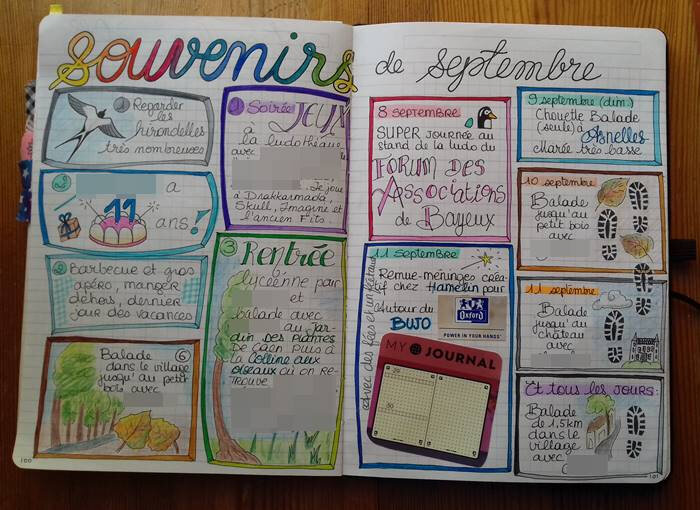 souvenirs
de septembre
1 Regarder
les
hirondelles
très nombreuses
2 a
11
ans!
2 Barbecue et gros
apéro, manger
dehors, dernier
jour des vacances
Balade 6
dans le village
jusqu'au petit
bois avec
1 Soirée JEUX
à la ludothèque
avec
. Je joue
à Drakkarmada,
Skull, Imagine et
l'ancien Fits.
3 Rentrée
lycéenne par
et
balade avec
au Jar-
din des Plantes
de Caen puis à
la Colline aux
oiseaux où on re-
trouve
8 septembre
SUPER journée au
stand de la ludo du
FORUM DES
Associations
de Bayeux
11 septembre
Remue-méninges créa-
tif chez Hamelin pour
autour du
BUJO
Oxford
POWER IN YOUR HANDS
MY JOURNAL
9 septembre (dim.)
Chouette Balade
(seule) à
Asnelles
Marée très basse
10 septembre
Balade
jusqu'au
petit bois
avec
11 septembre
Balade
jusqu'au
château
avec
Et tous les jours:
Balade
de 1,5km
dans le
village
avec
100
101